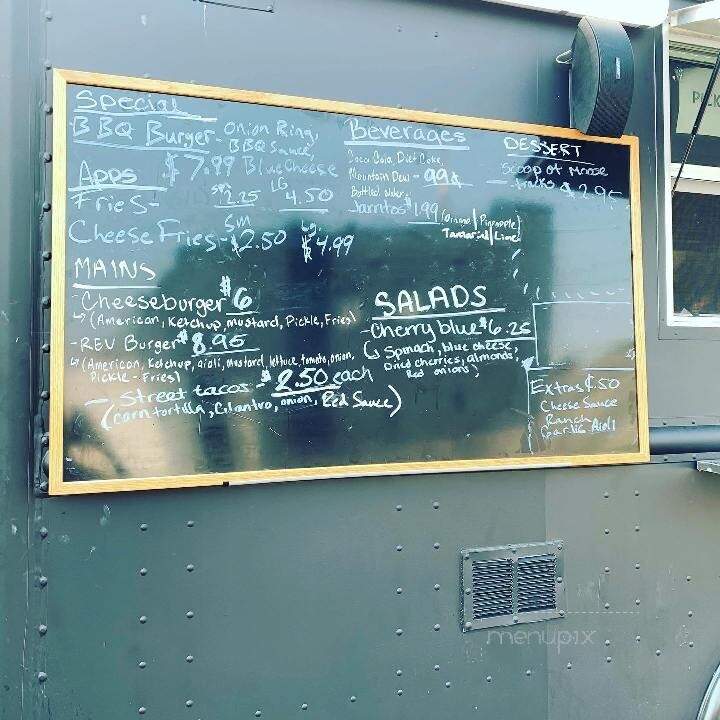 Special
- BBQ Burger - Onion Ring,
BBQ Sauce,
$7.99 Blue Cheese
Apps
Fries - sm 2.25 LG 4.50
Cheese Fries - sm $2.50 Lg $4.99
MAINS
- Cheeseburger $6
(American, Ketchup, mustard, Pickle, Fries)
- REV Burger $8.95
(American, Ketchup, aioli, mustard, lettuce, tomato, onion,
Pickle - Fries)
- Street tacos - $2.50 each
(corn tortilla, Cilantro, onion, Red Sauce)
Beverages
Coca Cola, Diet Coke,
Mountain Dew - 99¢
Bottled Water
Jarritos $1.99 (Orange / Pineapple /
Tamarind / Lime)
SALADS
- Cherry blue $6.25
Spinach, blue cheese,
Dried cherries, almonds,
Red onions)
DESSERT
Scoop of Moose
- Tracks $2.95
Extras $.50
Cheese Sauce
Ranch
Garlic Aioli
PICK
menupix